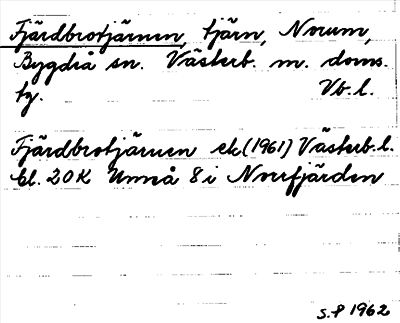 Fjärdbrotjärnen, tjärn, Norum,
Bygdeå sn. Västerb. m. doms.
tg. Vb. l.
Fjärdbrotjärnen ek (1961) Västerb. l.
bl. 20 K Umeå 8 i Norrfjärden
S. P 1962